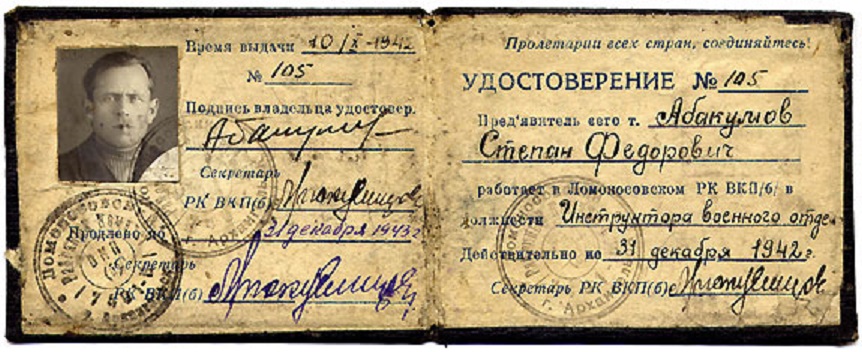 Время выдачи 10/X-1942
№ 105
Подпись владельца удостовер.
Абакумов
Секретарь
РК ВКП(б)
Продлено по 31 декабря 1943 г
Секретарь
РК ВКП(б)
Пролетарии всех стран, соединяйтесь!
УДОСТОВЕРЕНИЕ № 105
Пред'явитель сего т. Абакумов
Степан Федорович
работает в Ломоносовском РК ВКП/б/ в
должности Инструктора военного отде
Действительно по 31 декабря 1942 г.
Секретарь РК ВКП(б)
г. Архангел